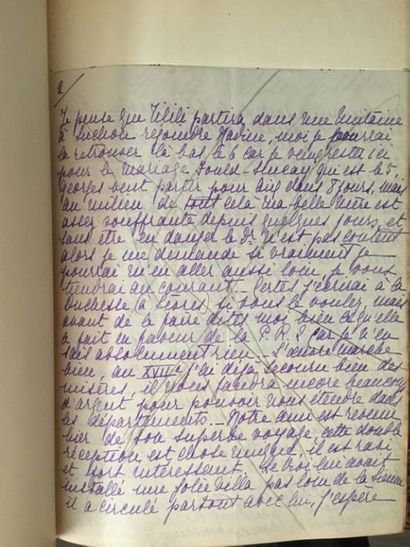 2/
Je pense que Lilili partira dans une huitaine
à Luchon rejoindre Janine, moi je pourrai
la retrouver là bas le 6 car je veux rester ici
pour le mariage Gould-Lucay qui est le 5
Georges veut partir pour Aix dans 8 jours, mais
au milieu de tout cela ma belle mère est
assez souffrante depuis quelques jours, et
sans être en danger le Dr n'est pas content
alors je me demande si vraiment je
pourrai m'en aller aussi loin, je vous
tiendrai au courant. Certes j'écrirai à la
Duchesse si vous le voulez, mais
avant de le faire dites moi bien ce qu'elle
a fait en faveur de la car je n'en
sais absolument rien. L'œuvre marche
bien, au XVIIe j'ai déjà secouru bien des
misères, il vous faudra encore beaucoup
d'argent pour pouvoir vous étendre dans
les départements. Notre ami est revenu
hier de son superbe voyage, cette double
réception est chose unique, il est ravi
et fort intéressant. Le roi lui avait
installé une jolie villa pas loin de la sienne
il a circulé partout avec lui, j'espère